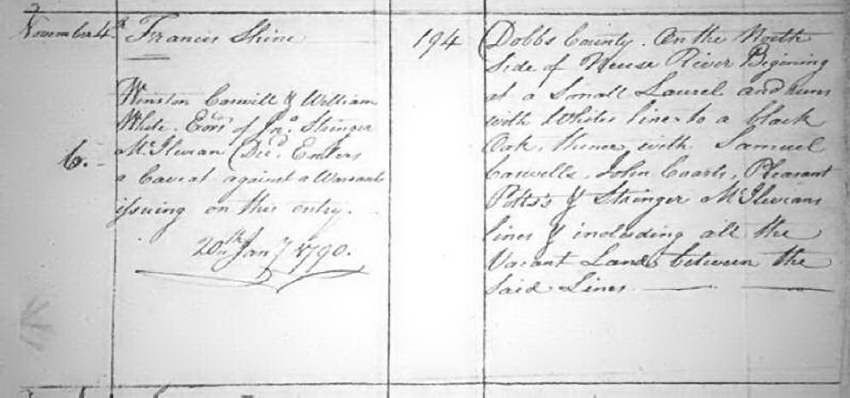 November 4th
Francis Shine
6.
Winston Caswell & William
White. Exors of Jno. Stringer
McIlwean (Decd. Enters
a Caveat against a Warrant
issuing on this entry.
20th Jany 1790.
194
Dobbs County. On the North
Side of Neuse River Begining
at a Small Laurel and runs
with Whites line to a black
Oak, thence with Samuel
Caswells, John Coarts, Pleasant
Potts's & Stringer McIlweans
lines & including all the
Vacant Land between the
Said Lines